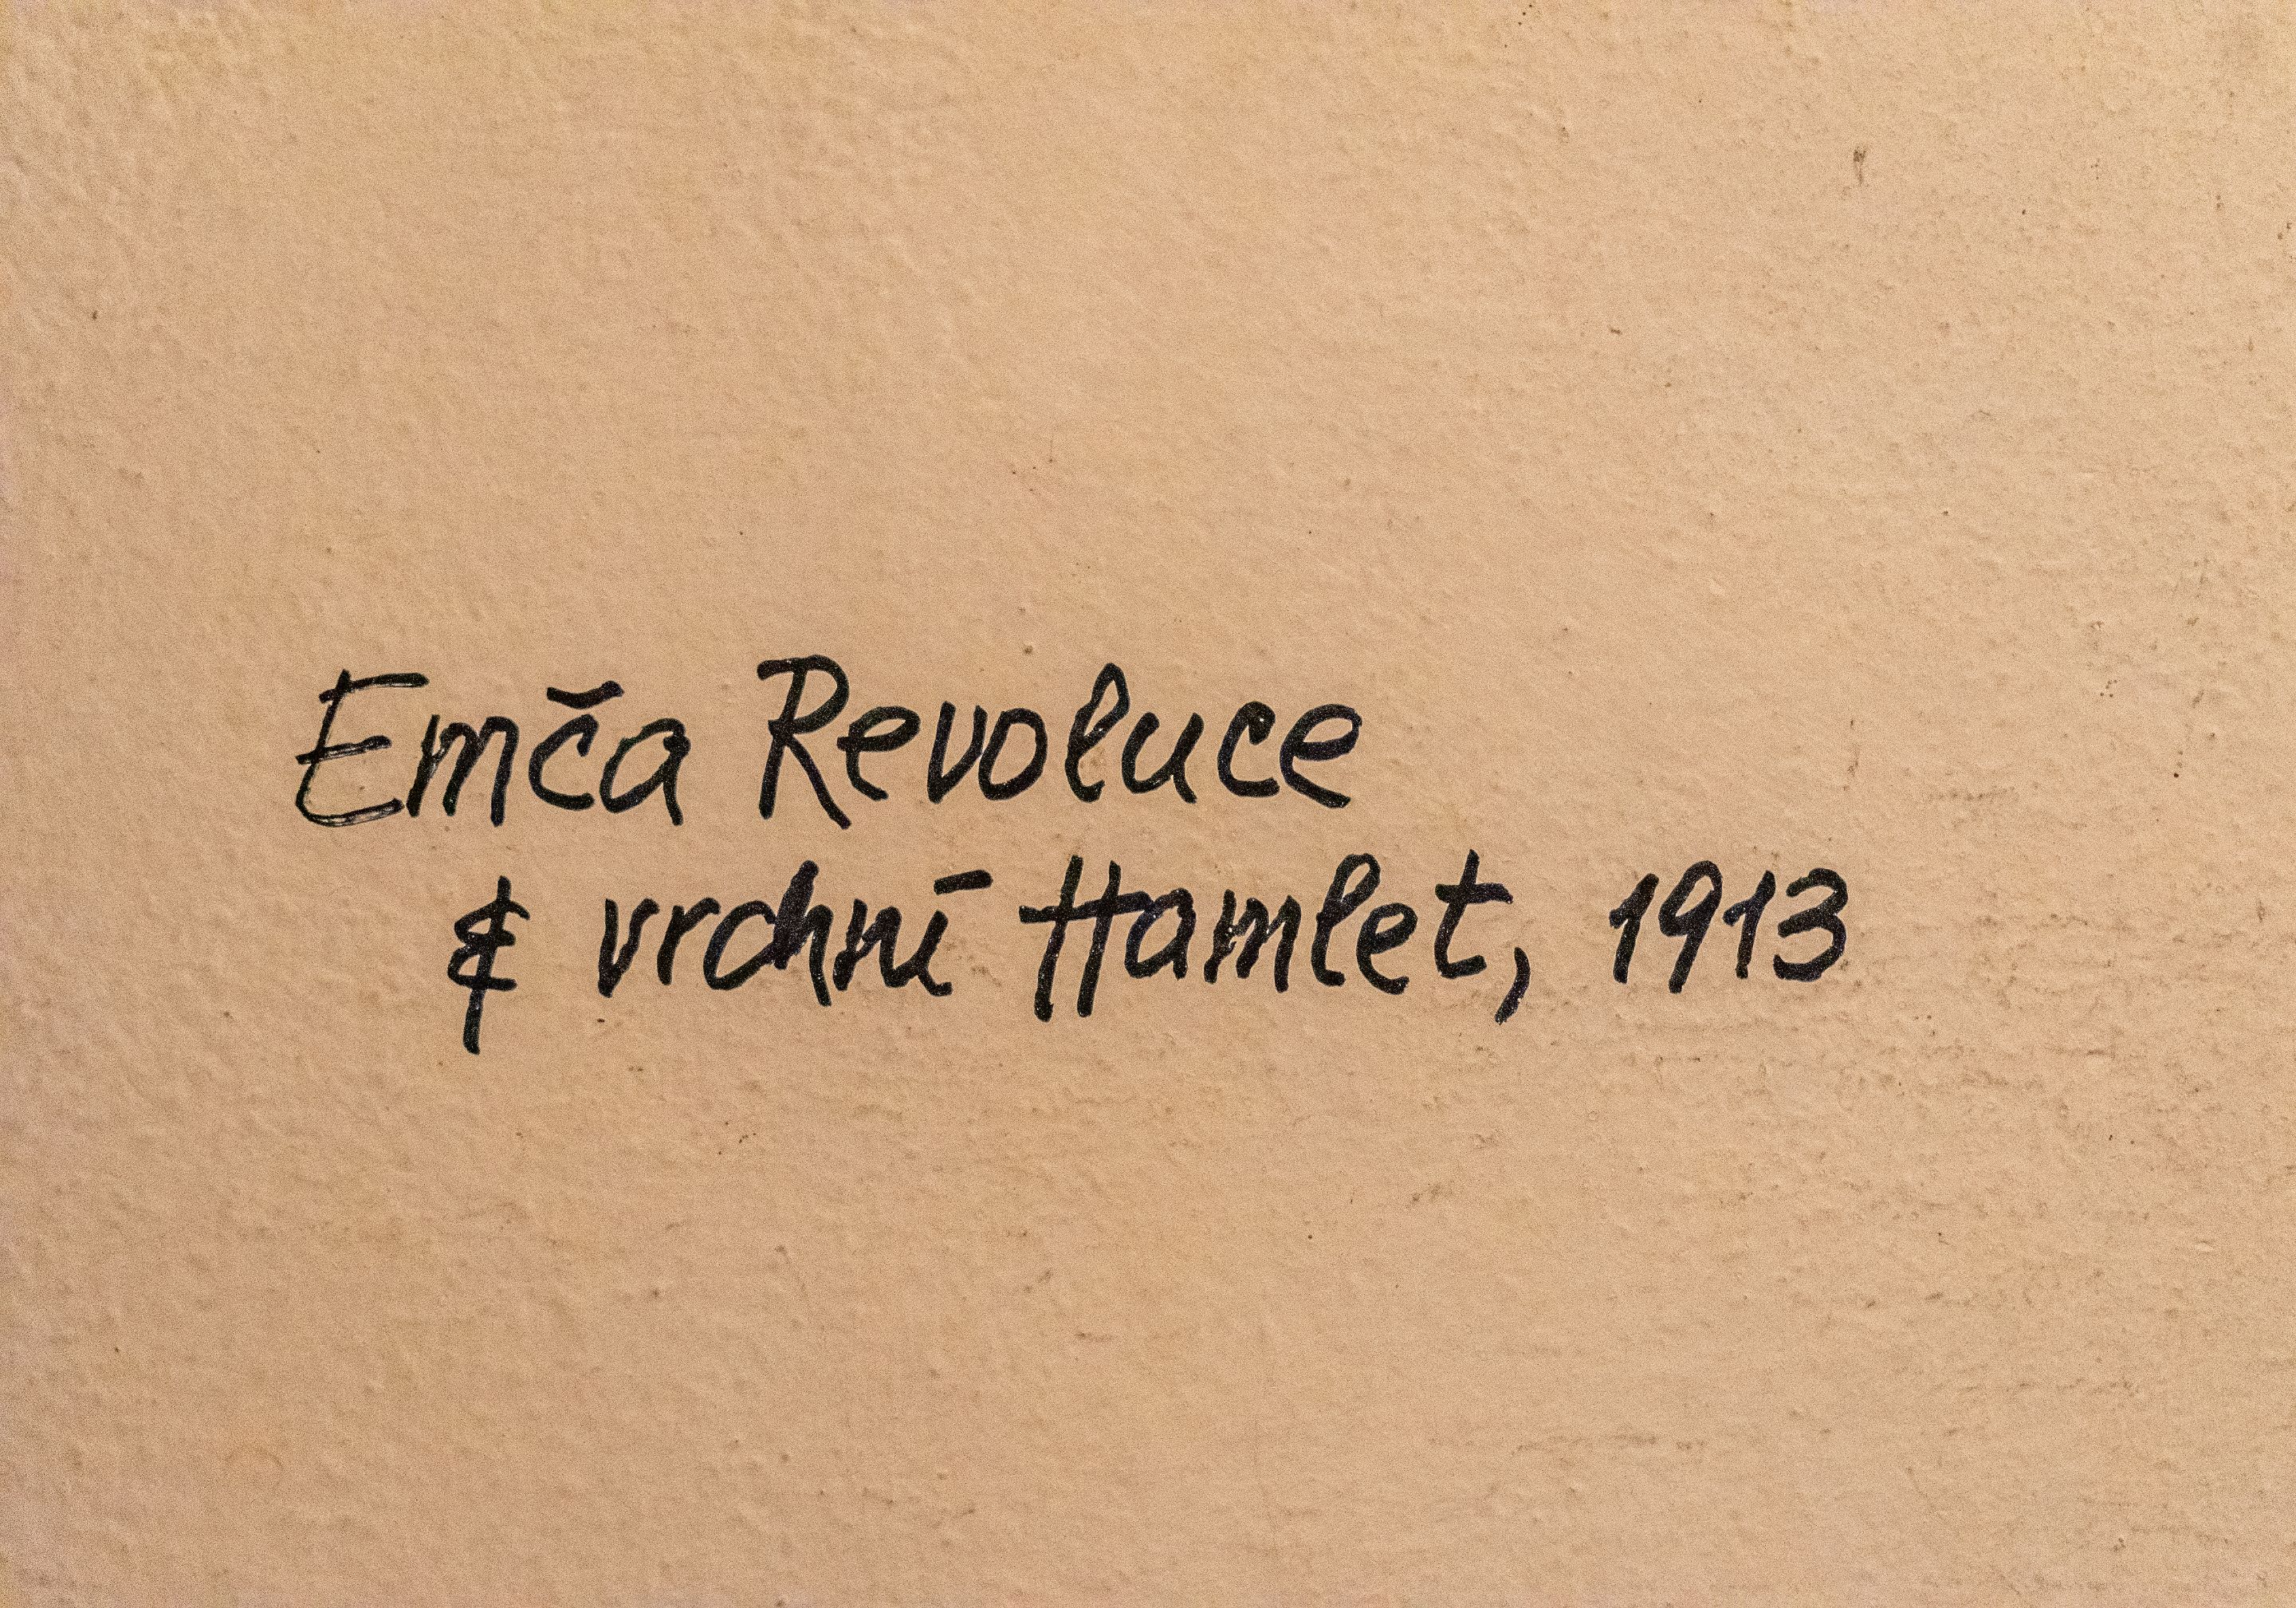 Emča Revoluce
& vrchní Hamlet, 1913